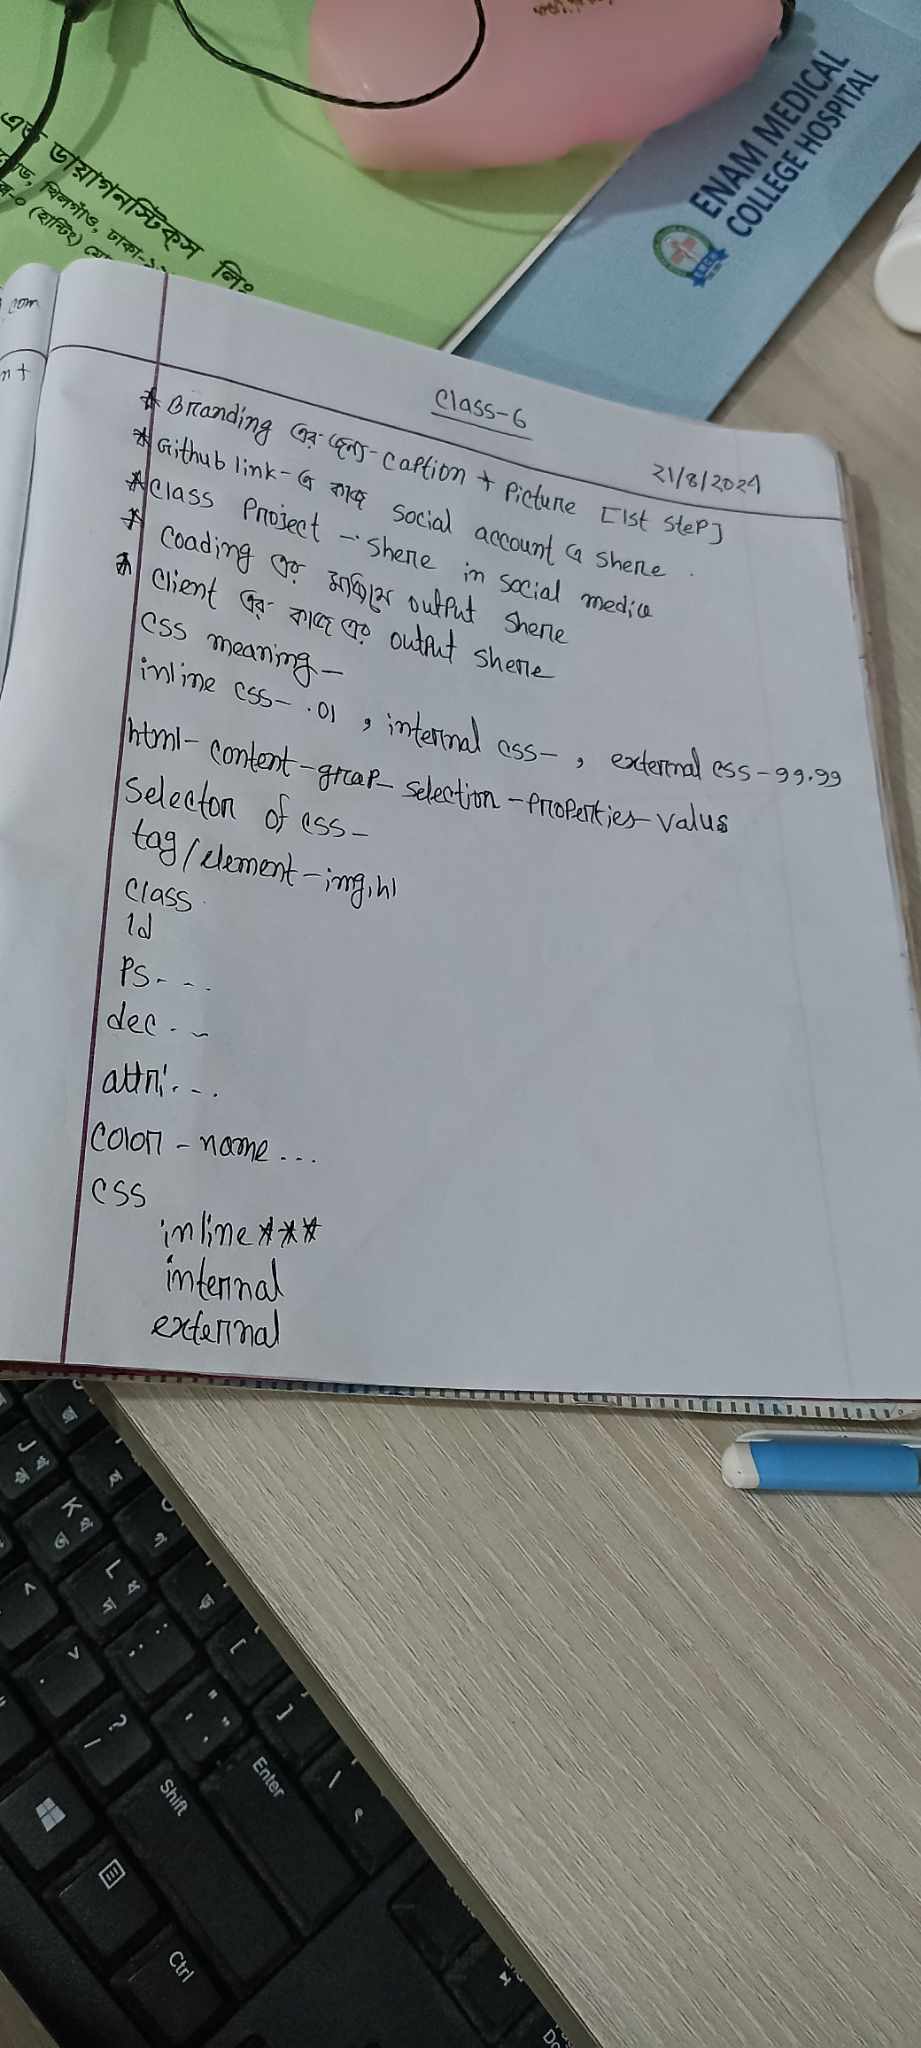 এন্ড ডায়াগনস্টিকস লিঃ
খিলগাঁও, ঢাকা-
(হান্টিং)
ENAM MEDICAL
COLLEGE HOSPITAL
.com
nt
Class-6
21/8/2024
* Branding এর জন্য - Caption + Picture [1st Step]
* Github link - এ কাজ social account এ shere.
* Class Project - shere in social media
* Coading এর মাধ্যমে output shere
* Client এর কাজে এর output shere
CSS meaning -
inline css - .01 , internal css - , external css - 99.99
html - content - grap - selection - properties - valus
Selector of css -
tag / element - img, h1
Class
Id
PS - - .
dec - -
attri - - .
Color - name ...
CSS
inline ***
internal
external
J
K
L
<
>
?
/
:
;
"
'
[
]
Enter
Shift
Ctrl